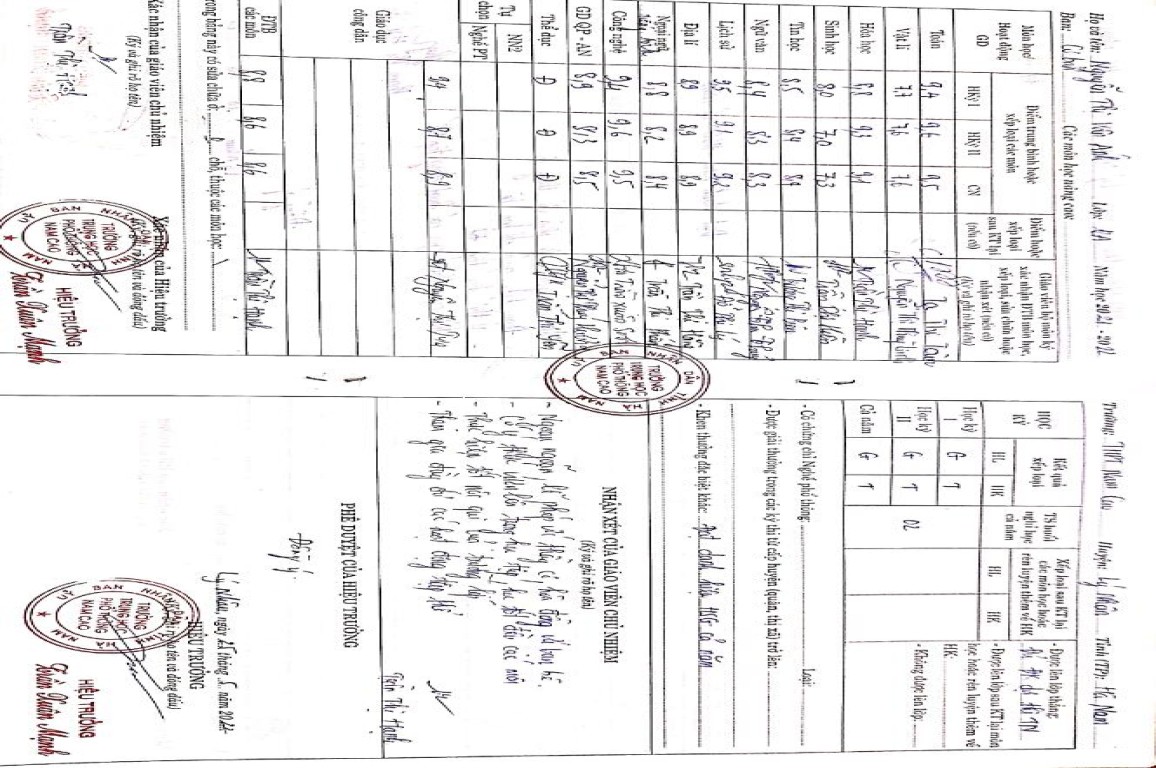 Họ và tên: Nguyễn Thị Vân Anh Lớp: 12 Năm học 2021 - 2022
Ban: Cơ bản Các môn học nâng cao:
Môn học/ Hoạt động GD
Điểm trung bình hoặc xếp loại các môn
HKỳ I HKỳ II CN
Điểm hoặc xếp loại sau KT lại (nếu có)
Giáo viên bộ môn ký xác nhận ĐTB môn học, xếp loại, sửa chữa hoặc nhận xét (nếu có)
(Ký và ghi rõ họ tên)
Toán 9,4 9,6 9,5
Vật lí 7,7 7,6 7,6
Hóa học 8,8 9,3 9,1
Sinh học 8,0 7,0 7,3
Tin học 8,5 8,4 8,4
Ngữ văn 8,4 8,3 8,3
Lịch sử 9,5 9,1 9,2
Địa lí 8,9 8,9 8,9
Ngoại ngữ 8,8 8,2 8,4
Công nghệ 9,4 9,6 9,5
GD QP - AN 8,9 8,3 8,5
Thể dục Đ Đ Đ
Tự chọn
NN2
Nghề PT
Giáo dục công dân 9,4 8,7 8,9
ĐTB các môn 8,9 8,6 8,6 Trần Thị Hạnh
Trong bảng này có sửa chữa ở: 0 chỗ, thuộc các môn học: \
Xác nhận của giáo viên chủ nhiệm
(Ký và ghi rõ họ tên)
Xác nhận của Hiệu trưởng
(Ký, ghi rõ họ tên và đóng dấu)
HIỆU TRƯỞNG
Trần Xuân Mạnh
ỦY BAN NHÂN DÂN TỈNH HÀ NAM
TRƯỜNG
TRUNG HỌC
PHỔ THÔNG
NAM CAO
Trường: THPT Nam Cao Huyện: Lý Nhân Tỉnh (TP): Hà Nam
HỌC KỲ
Kết quả xếp loại
HL HK
TS buổi nghỉ học cả năm
Xếp loại sau KT lại các môn học hoặc rèn luyện thêm về HK
HL HK
Học kỳ I G T
Học kỳ II G T 02
Cả năm G T
- Được lên lớp thẳng:
- Được lên lớp sau KT lại môn học hoặc rèn luyện thêm về HK:
- Không được lên lớp:
- Có chứng chỉ Nghề phổ thông: Loại:
- Được giải thưởng trong các kỳ thi từ cấp huyện (quận, thị xã) trở lên:
- Khen thưởng đặc biệt khác: Đạt danh hiệu HSG cả năm
ỦY BAN NHÂN DÂN TỈNH HÀ NAM
TRƯỜNG
TRUNG HỌC
PHỔ THÔNG
NAM CAO
NHẬN XÉT CỦA GIÁO VIÊN CHỦ NHIỆM
(Ký và ghi rõ họ tên)
- Ngoan ngoãn, lễ phép với thầy cô, hòa đồng với bạn bè.
- Có ý thức vươn lên trong học tập, học tốt đều các môn
- Thực hiện tốt nội qui của trường, lớp
- Tham gia đầy đủ các hoạt động tập thể
Trần Thị Hạnh
PHÊ DUYỆT CỦA HIỆU TRƯỞNG
Đồng ý.
Lý Nhân, ngày 25 tháng 5 năm 2022
HIỆU TRƯỞNG
(Ký, ghi rõ họ tên và đóng dấu)
HIỆU TRƯỞNG
Trần Xuân Mạnh
ỦY BAN NHÂN DÂN TỈNH HÀ NAM
TRƯỜNG
TRUNG HỌC
PHỔ THÔNG
NAM CAO